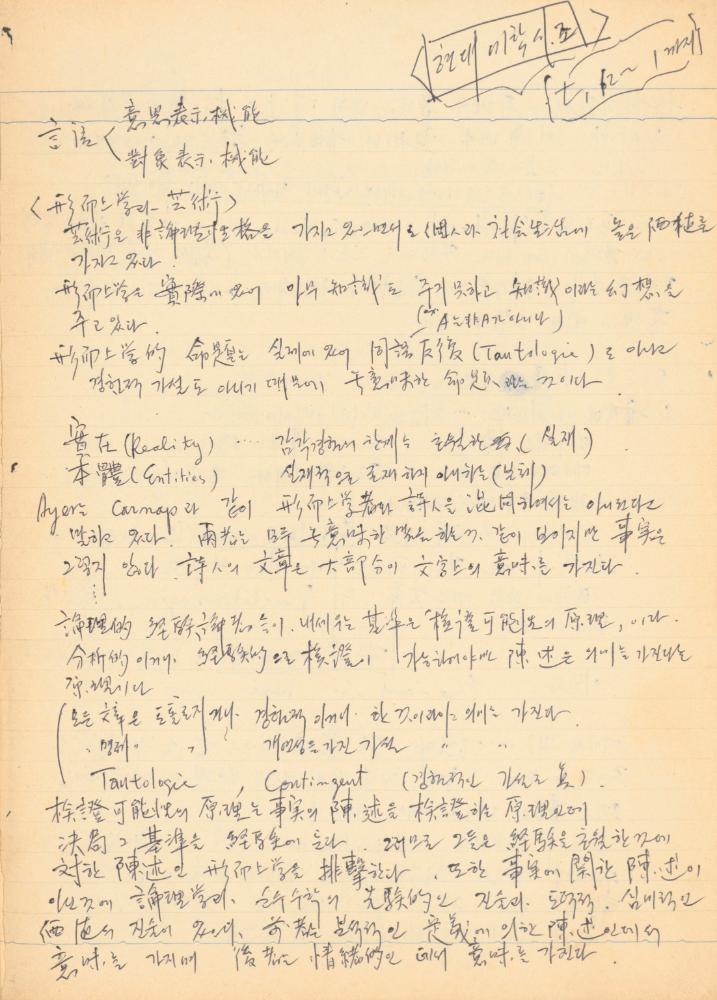 <현대 미학 시.조>
言語 < 意思表示.机能
對象表示.机能
<形而上学과 芸術>
芸術은 非論理的性格을 가지고 있으면서도 個人과 社会生活에 높은 価値를
가지고 있다.
形而上学은 實際에 있어 아무 知識도 주지 못하고 知識이라는 幻想을
주고 있다.
(A는 非A가 아니다)
形而上学的 命題는 실제에 있어 同語反復(Tautologie)도 아니고
경험적 가설도 아니기 때문에 무意味한 命題라는 것이다
實在(Reality) ‥‥ 감각경험의 한계를 초월한 (실재)
本體(Entities) 실재적으로 존재하지 아니하는 (본체)
Ayer는 Carnap과 같이 形而上学者와 詩人을 混同하여서는 아니된다고
말하고 있다. 両者는 모두 무意味한 말을 하는것 같이 보이지만 事実은
그렇지 않다. 詩人의 文章은 大部分이 文字上의 意味를 가진다.
論理的 経験論者들이 내세우는 基準은 "検證可能性의 原理"이다.
分析的이거나 経験的으로 検證이 가능하여야만 陳述은 의미를 가진다는
原理이다
모든 文章은 토톨로지거나 경험적이거나 한 것이라야 의미를 가진다.
〃 명제 〃 〃 개연성을 가진 가설 〃 〃
Tautologie, Contingent (경험적인 가설로 봄).
検證可能性의 原理는 事実의 陳述을 検證하는 原理인데
決局 그 基準을 経験에 둔다. 그러므로 그들은 経験을 초월한 것에
対한 陳述인 形而上学을 排擊한다. 또한 事実에 関한 陳述이
아닌것에 論理学과, 순수수학의 先験的인 진술과 도덕적. 심미적인
価値의 진술이 있으니, 前者는 분석적인 定義에 의한 陳述인데서
意味를 가지며 後者는 情緒的인 데서 意味를 가진다.